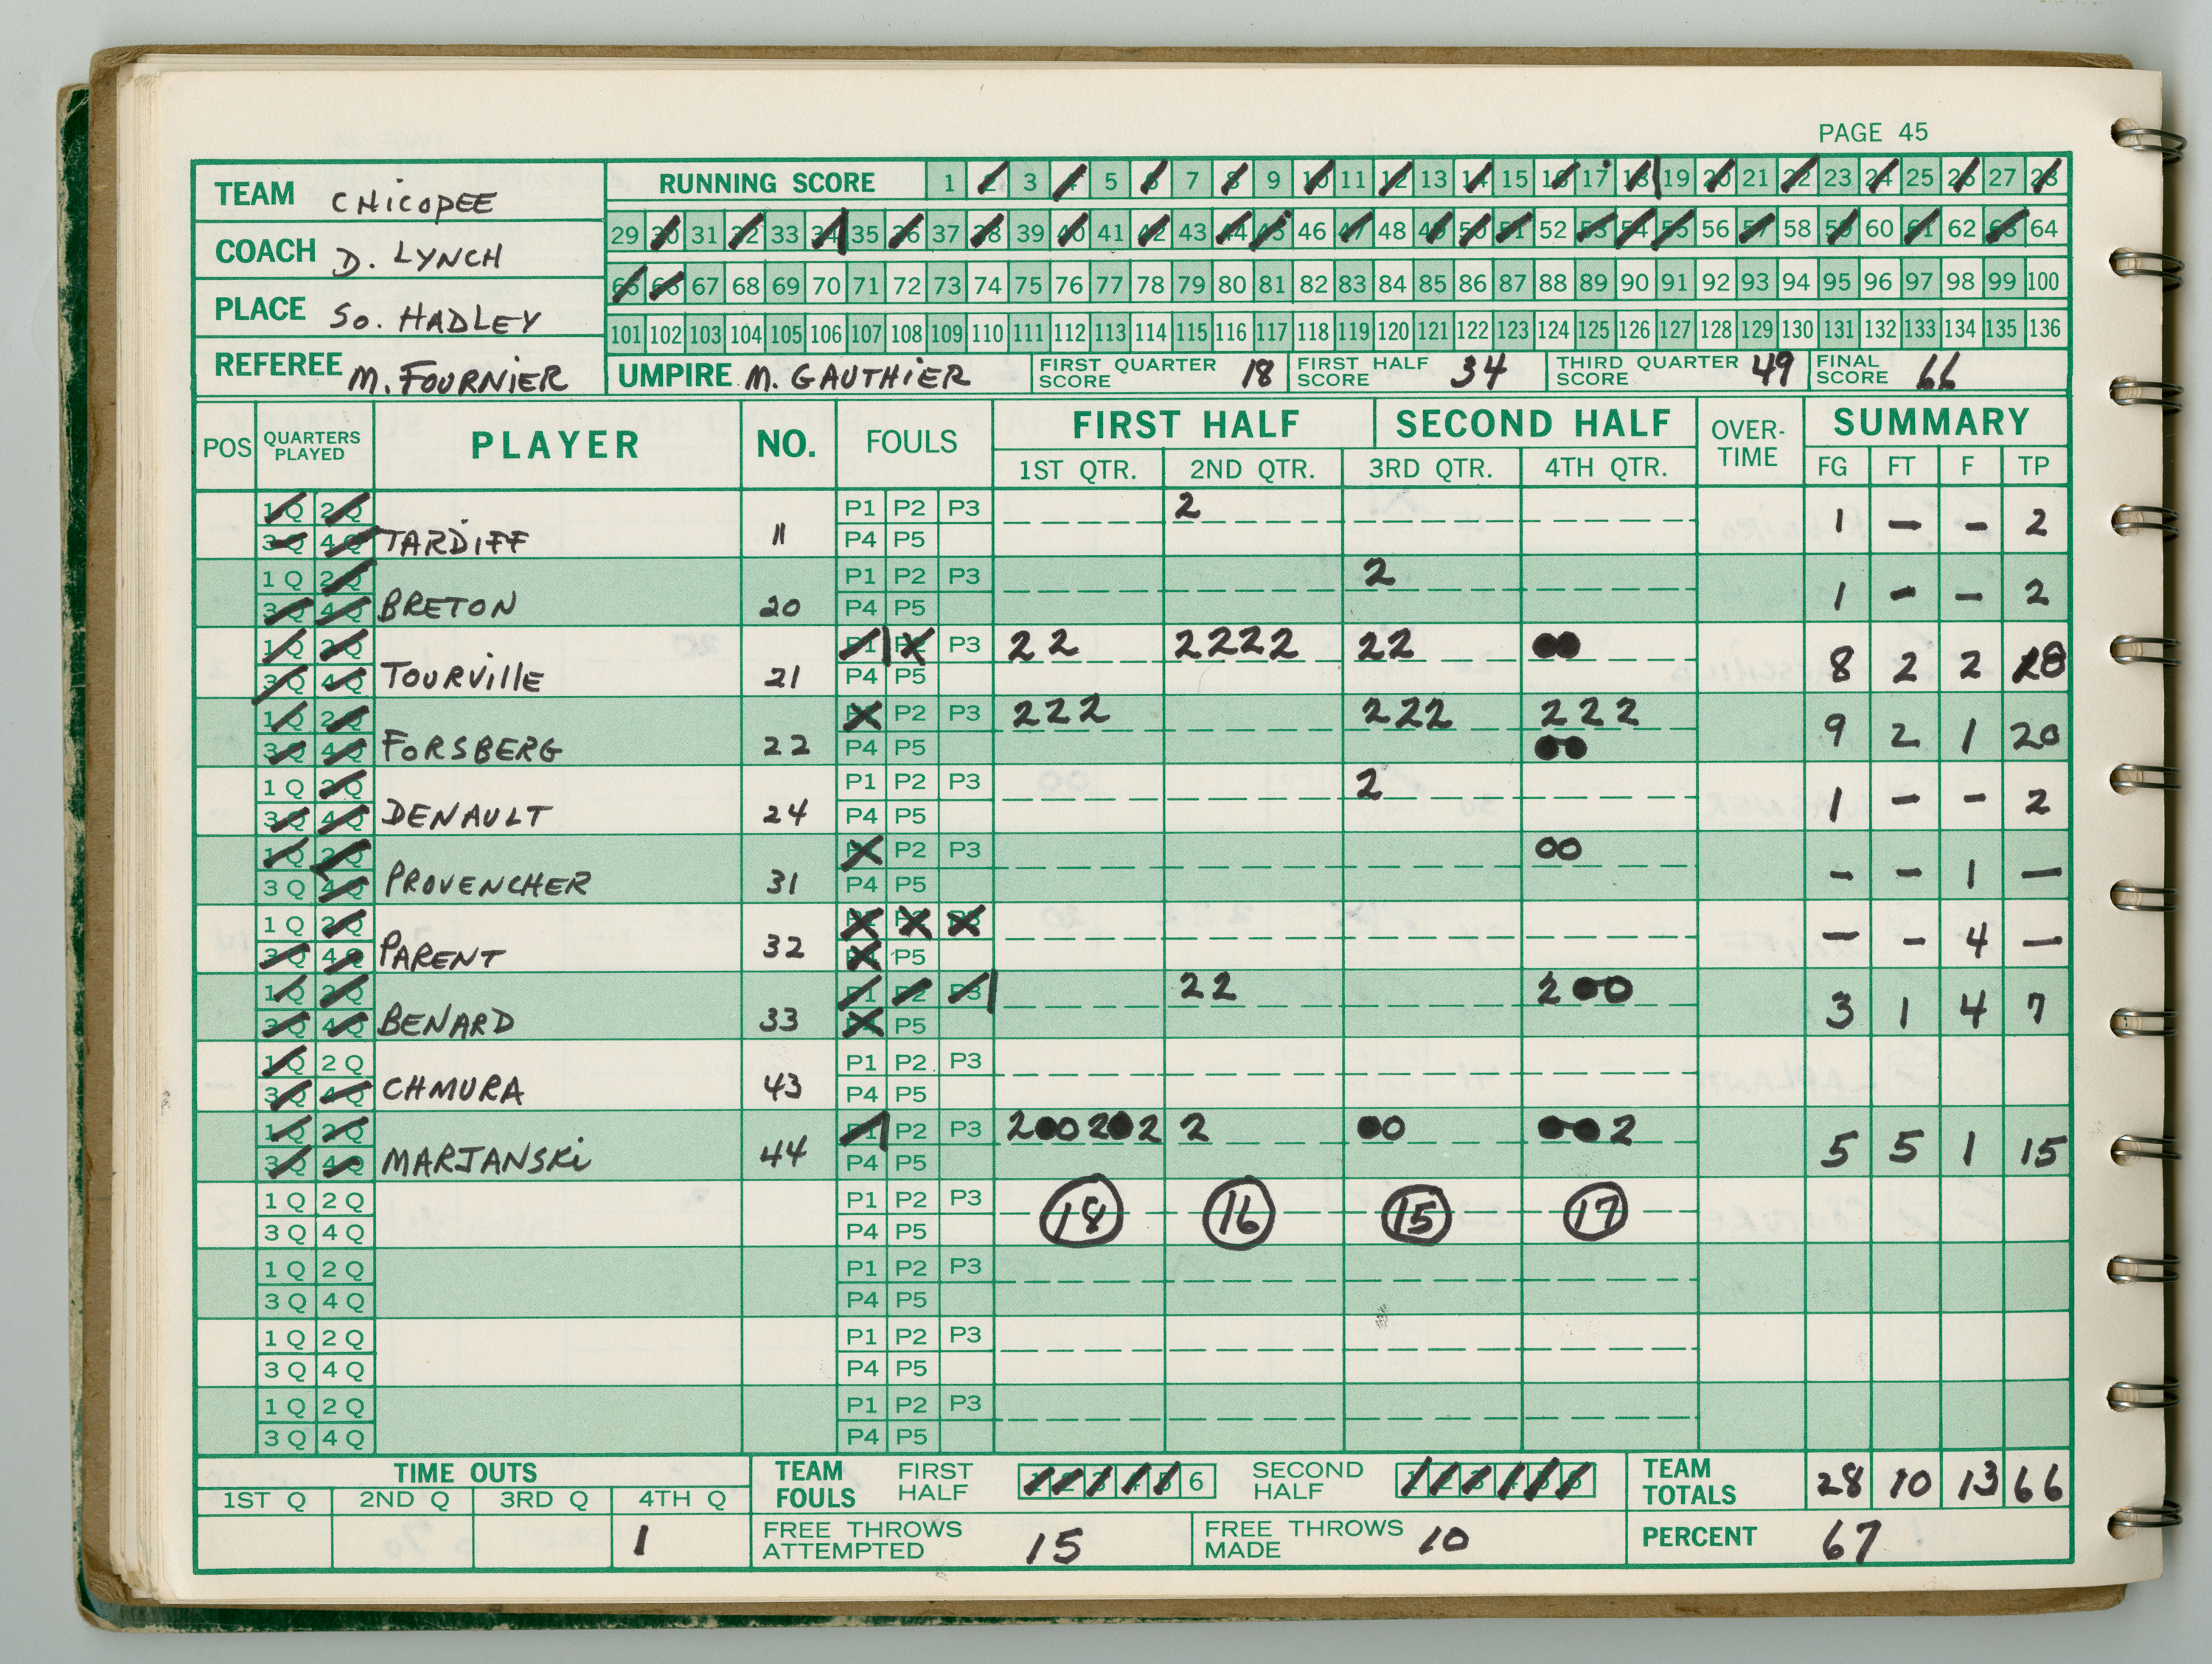 PAGE 45
TEAM CHICOPEE
COACH D. LYNCH
PLACE SO. HADLEY
REFEREE M. FOURNIER
RUNNING SCORE 1 2 3 4 5 6 7 8 9 10 11 12 13 14 15 16 17 18 19 20 21 22 23 24 25 26 27 28
29 30 31 32 33 34 35 36 37 38 39 40 41 42 43 44 45 46 47 48 49 50 51 52 53 54 55 56 57 58 59 60 61 62 63 64
65 66 67 68 69 70 71 72 73 74 75 76 77 78 79 80 81 82 83 84 85 86 87 88 89 90 91 92 93 94 95 96 97 98 99 100
101 102 103 104 105 106 107 108 109 110 111 112 113 114 115 116 117 118 119 120 121 122 123 124 125 126 127 128 129 130 131 132 133 134 135 136
UMPIRE M. GAUTHIER FIRST QUARTER SCORE 18 FIRST HALF SCORE 34 THIRD QUARTER SCORE 49 FINAL SCORE 66
POS QUARTERS PLAYED PLAYER NO. FOULS FIRST HALF SECOND HALF OVER-TIME SUMMARY
1ST QTR. 2ND QTR. 3RD QTR. 4TH QTR. FG FT F TP
1Q 2Q P1 P2 P3 2
3Q 4Q TARDIFF 11 P4 P5 1 - - 2
1Q 2Q P1 P2 P3 2
3Q 4Q BRETON 20 P4 P5 1 - - 2
1Q 2Q P1 P2 P3 22 2222 22 ●●
3Q 4Q TOURVILLE 21 P4 P5 8 2 2 18
1Q 2Q P1 P2 P3 222 222 222
3Q 4Q FORSBERG 22 P4 P5 ●● 9 2 1 20
1Q 2Q P1 P2 P3 2
3Q 4Q DENAULT 24 P4 P5 1 - - 2
1Q 2Q P1 P2 P3 00
3Q 4Q PROVENCHER 31 P4 P5 - - 1 -
1Q 2Q P1 P2 P3
3Q 4Q PARENT 32 P4 P5 - - 4 -
1Q 2Q P1 P2 P3 22 2●0
3Q 4Q BENARD 33 P4 P5 3 1 4 7
1Q 2Q P1 P2 P3
3Q 4Q CHMURA 43 P4 P5
1Q 2Q P1 P2 P3 2●02●2 2 ●0 ●●2
3Q 4Q MARJANSKI 44 P4 P5 5 5 1 15
1Q 2Q P1 P2 P3 18 16 15 17
3Q 4Q P4 P5
1Q 2Q P1 P2 P3
3Q 4Q P4 P5
1Q 2Q P1 P2 P3
3Q 4Q P4 P5
1Q 2Q P1 P2 P3
3Q 4Q P4 P5
TIME OUTS
1ST Q 2ND Q 3RD Q 4TH Q
1
TEAM FOULS FIRST HALF 1 2 3 4 5 6 SECOND HALF 1 2 3 4 5 6
TEAM TOTALS 28 10 13 66
FREE THROWS ATTEMPTED 15 FREE THROWS MADE 10 PERCENT 67